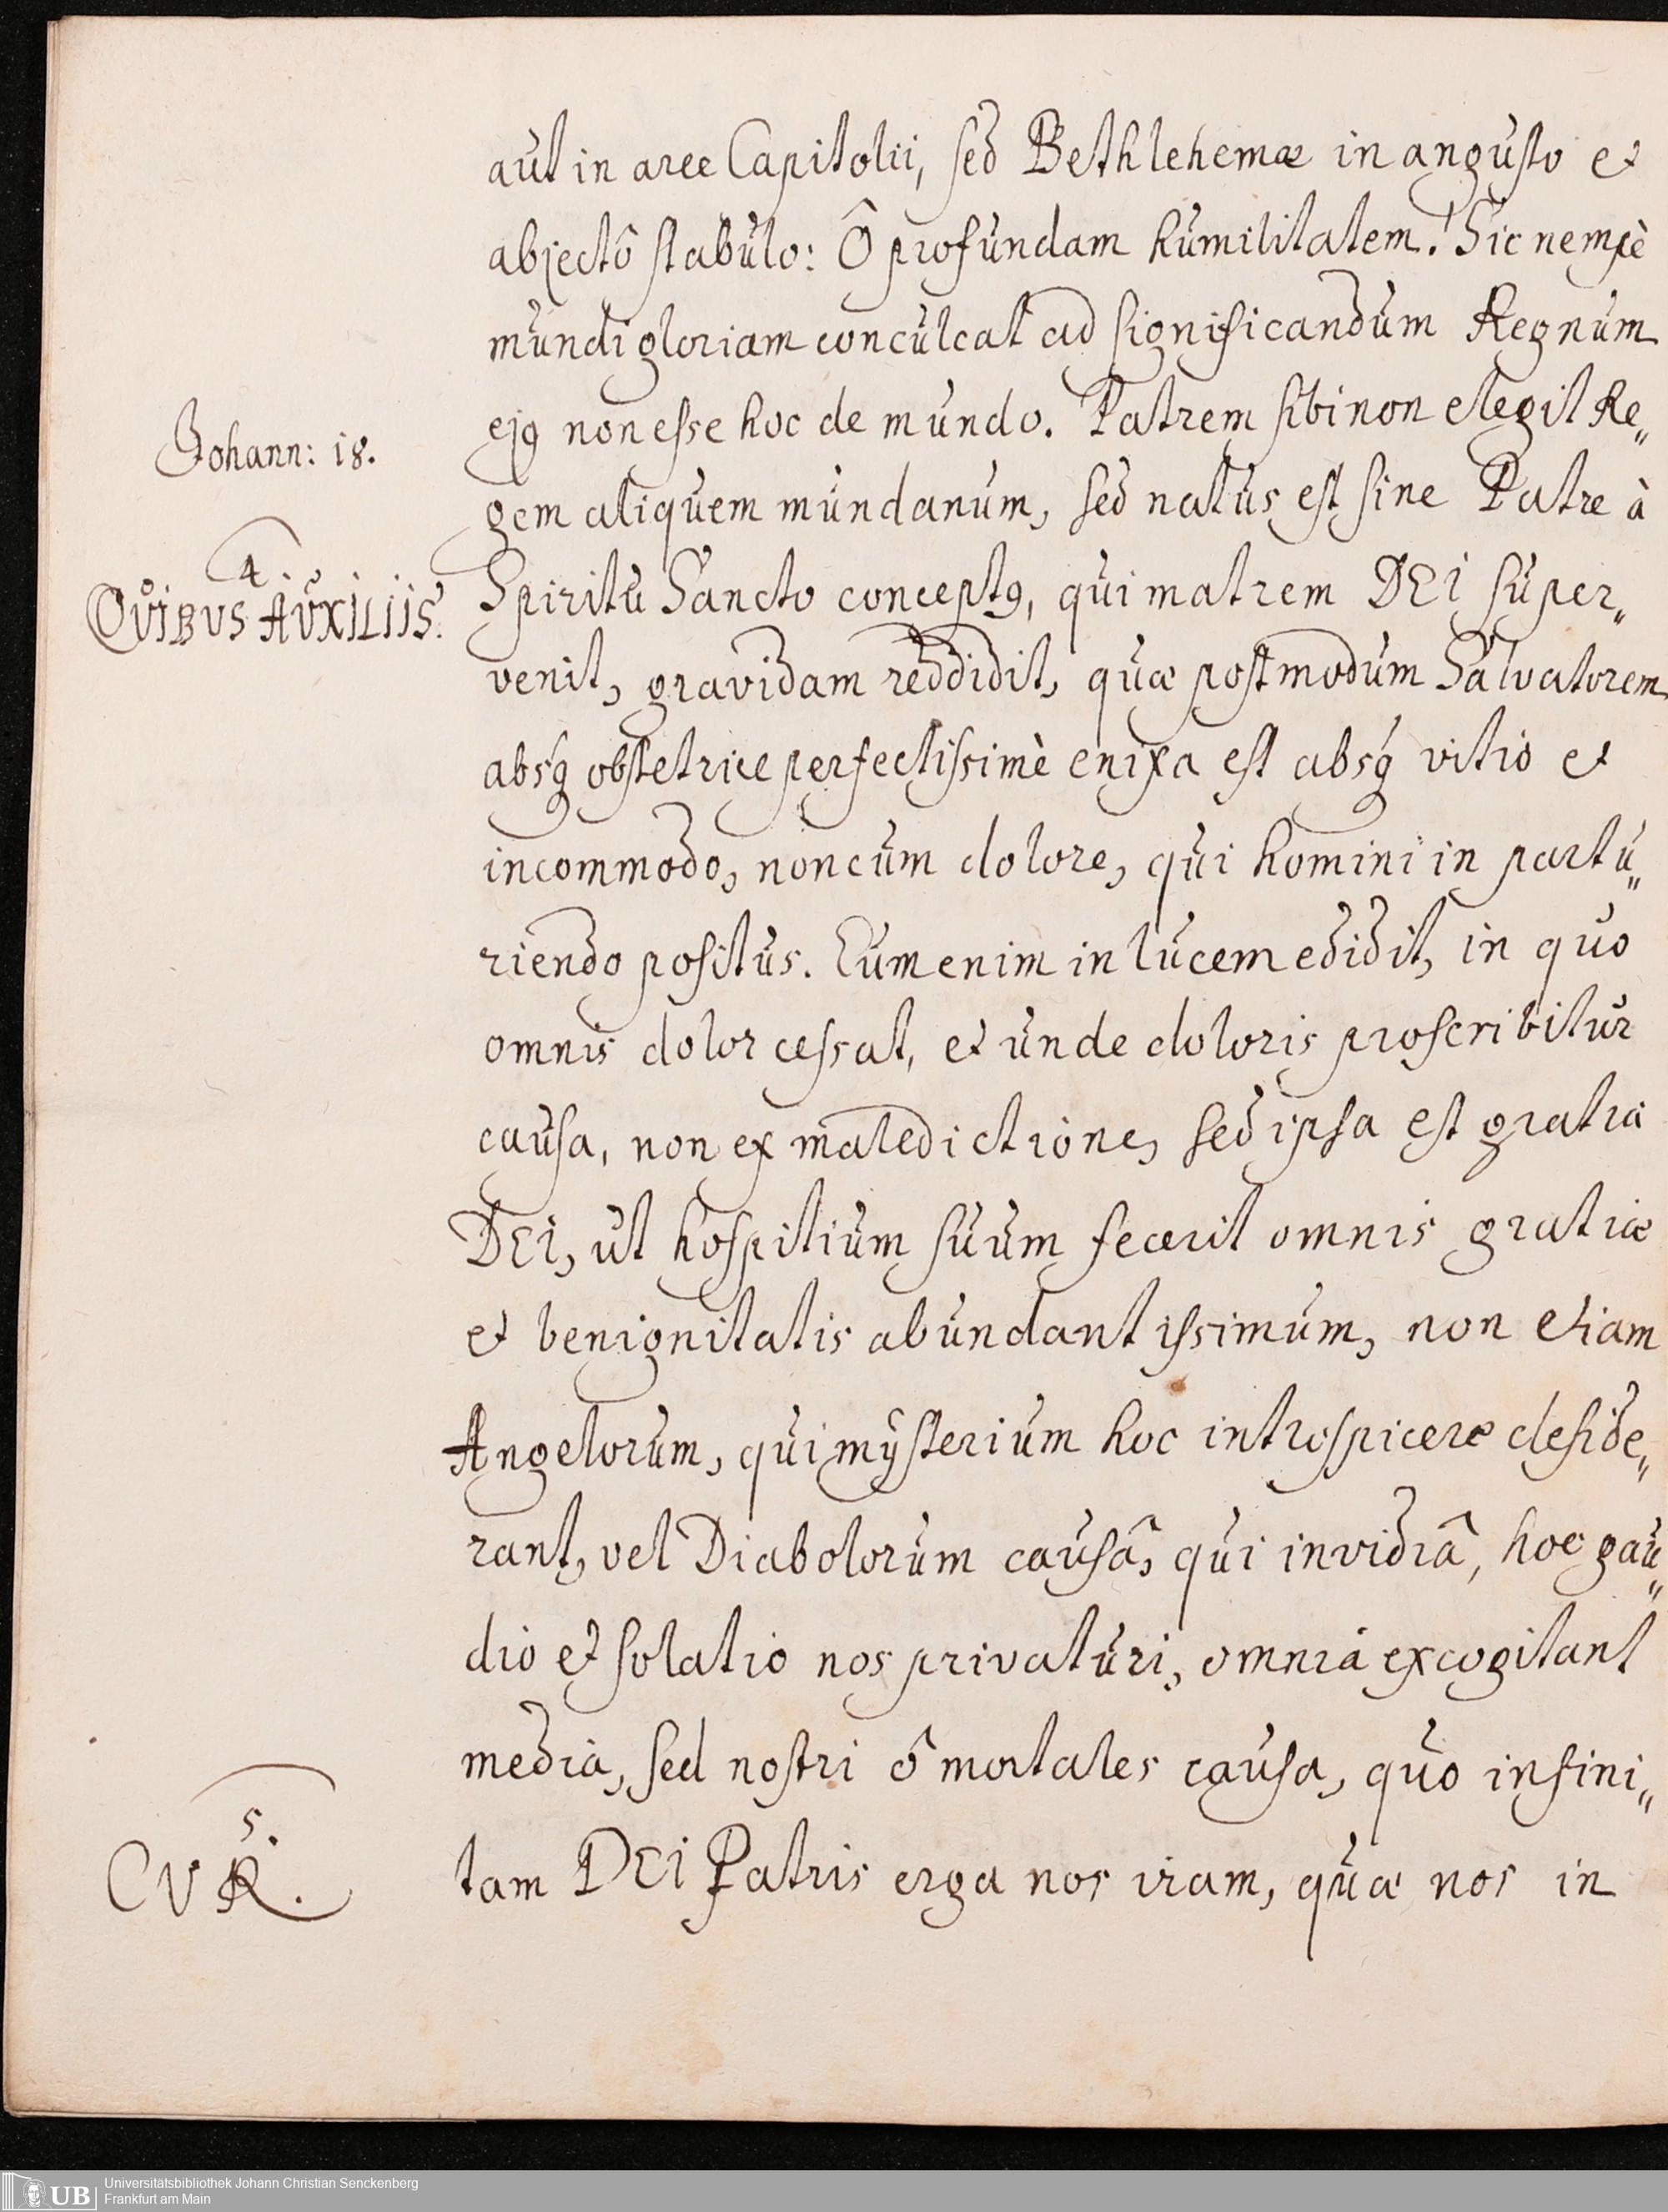 aut in arce Capitolii, sed Bethlehemæ in angusto et
abjectô stabulo: Ô profundam humilitatem! Sic nempè
mundi gloriam conculcat ad significandum Regnum
Johann: 18.
ejꝰ non esse hoc de mundo. Patrem sibi non elegit Re„
gem aliquem mundanum, sed natus est sine Patre à
4.
QVIBVS AVXILIIS.
Spiritu Sancto conceptꝰ, qui matrem DEI super„
venit, gravidam reddidit, quæ postmodum Salvatorem
absq́ obstetrice perfectissimè enixa est absq́ vitio et
incommodo, non cum dolore, qui homini in partu„
riendo positus. Eum enim in lucem edidit, in quo
omnis dolor cessat, et unde doloris proscribitur
causa, non ex maledictione, sed ipsa est gratia
DEI, ut hospitium suum fecerit omnis gratiæ
et benignitatis abundantissimum, non etiam
Angelorum, qui mÿsterium hoc introspicere deside„
rant, vel Diabolorum causâ, qui invidiâ, hoc gau„
dio et solatio nos privaturi, omnia excogitant
media, sed nostri ô mortales causa, quo infini„
5.
CVR.
tam DEI Patris erga nos iram, quæ nos in
Universitätsbibliothek Johann Christian Senckenberg
UB
Frankfurt am Main